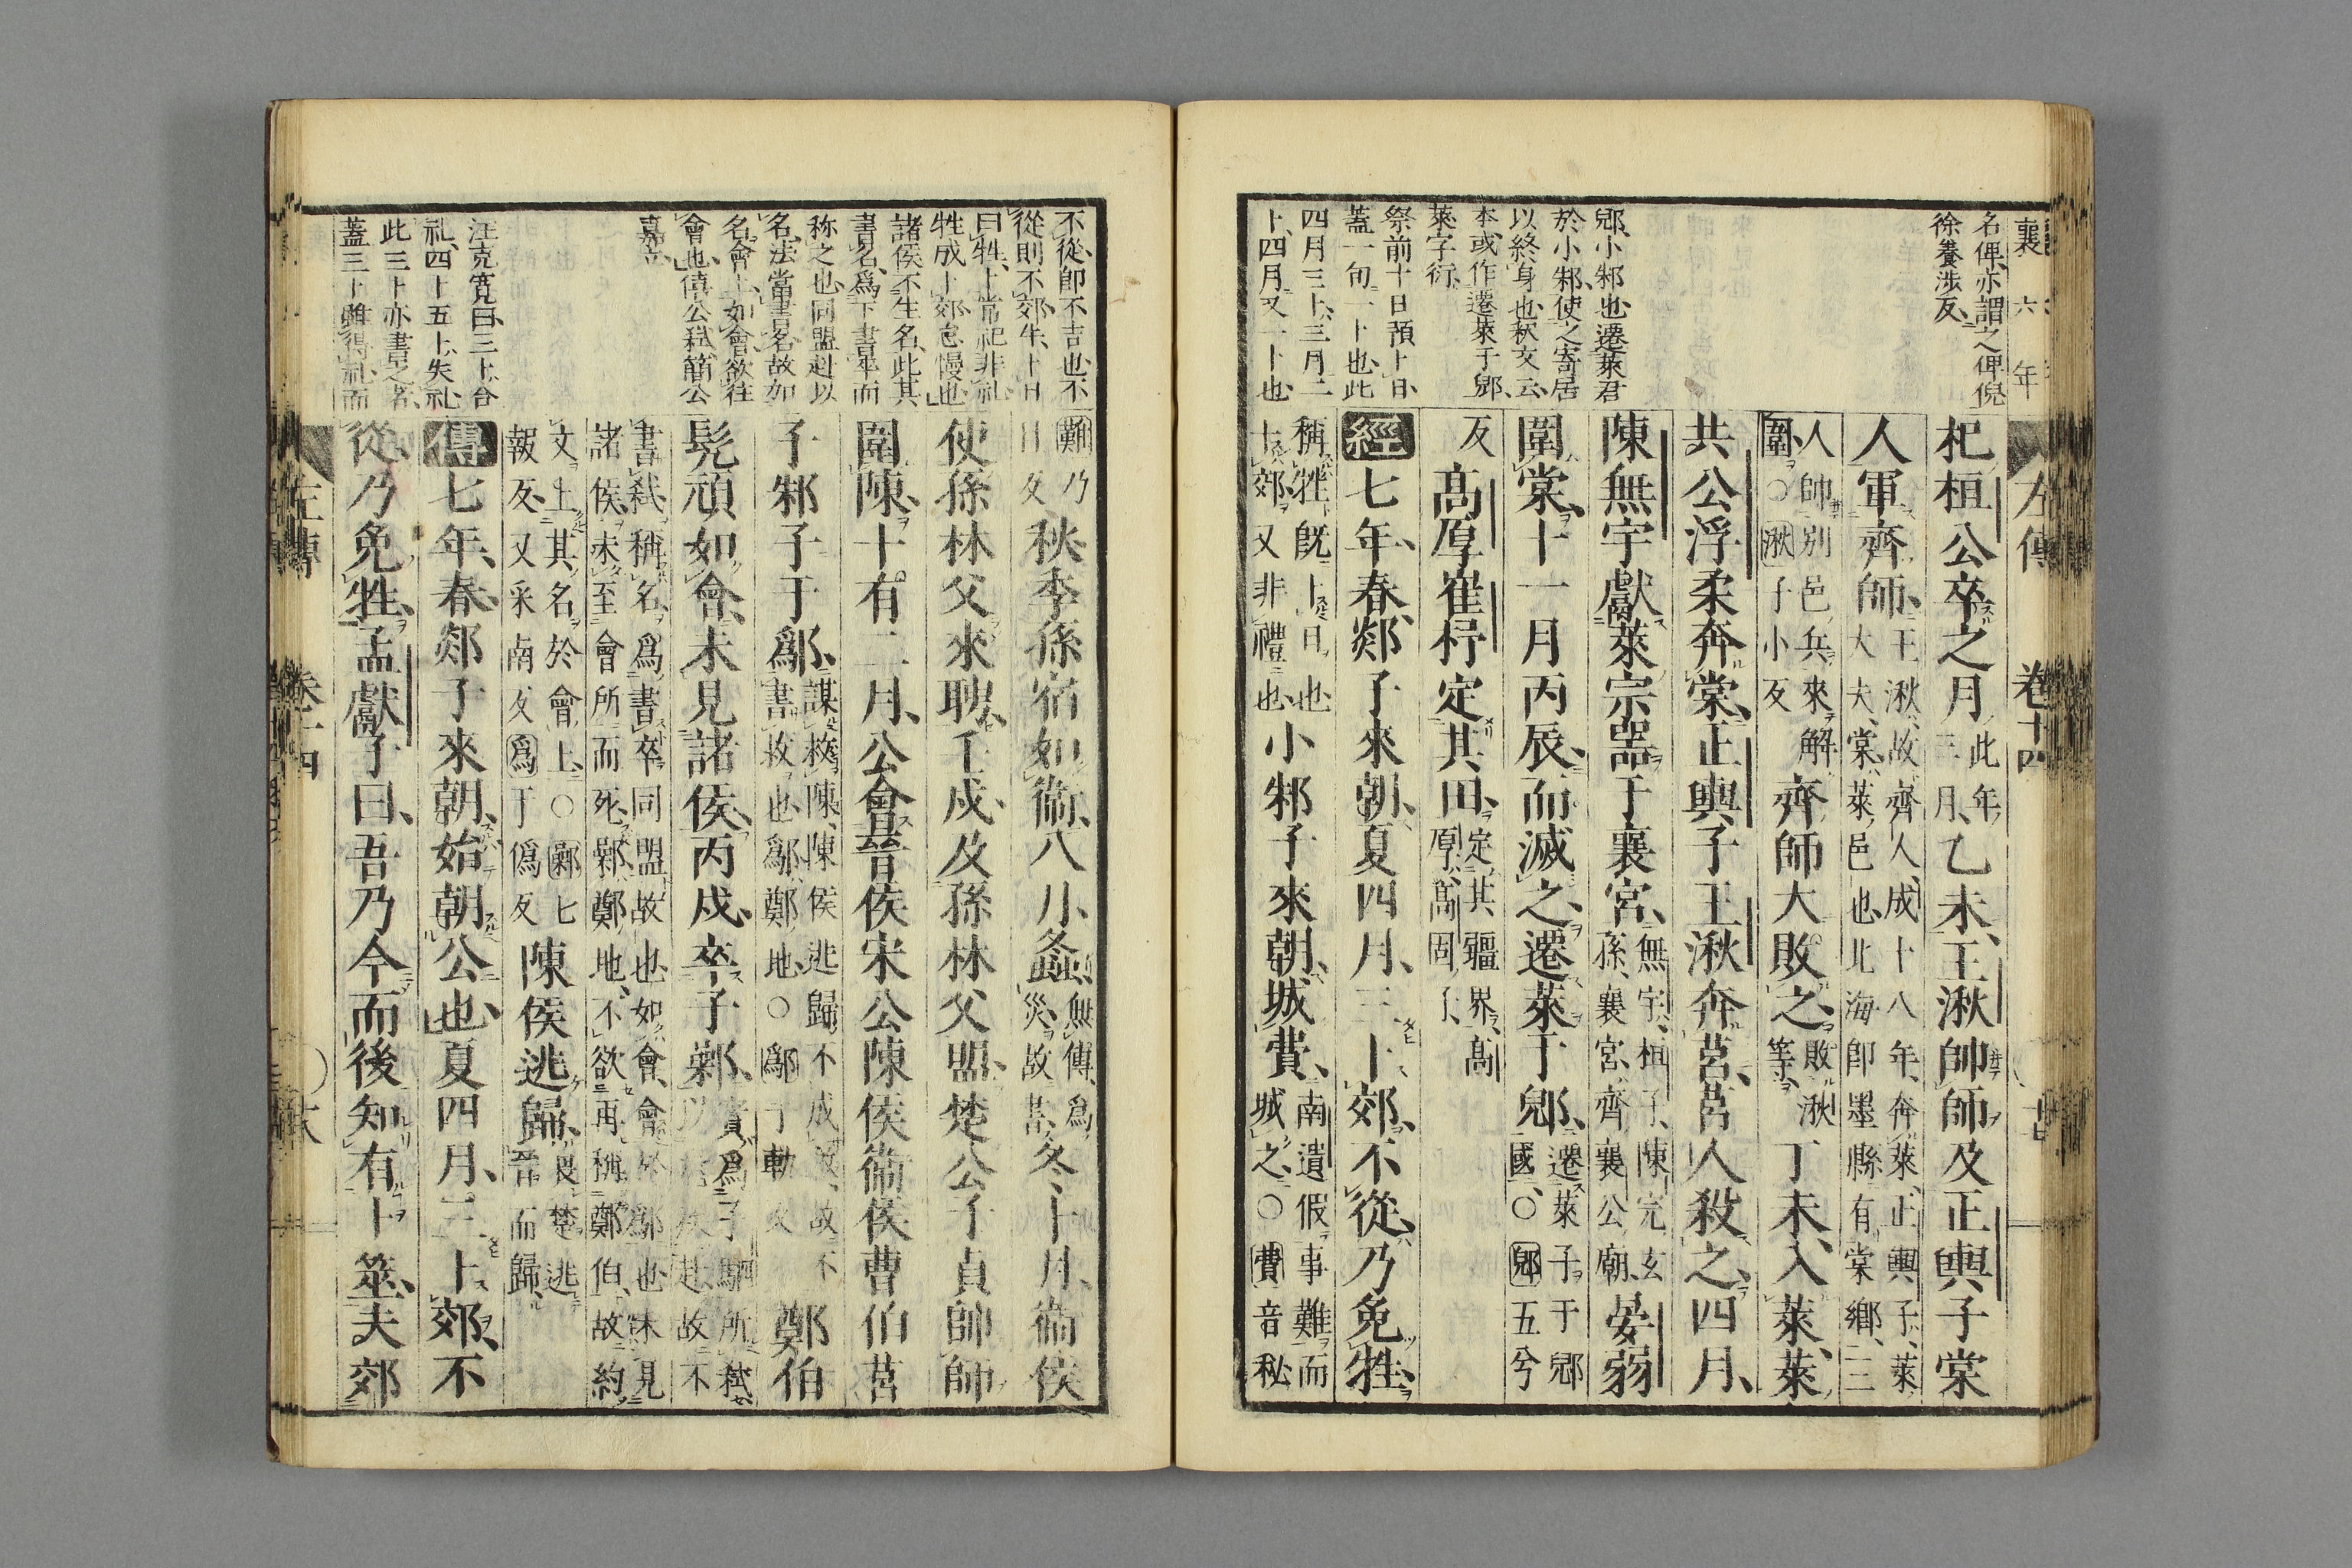 襄六年
左傳 卷十四
名俾亦謂之俾倪
徐養渉反
鄉小邾也遷萊君
於小邾使之寄居
以終身也釈文云
本或作遷萊于鄉
萊字衍
祭前十日預卜日
蓋一旬一卜也此
四月三卜三月二
卜四月又一卜也
杞桓公卒之月此年三月乙未王湫帥師及正輿子棠
人軍齊師王湫故齊人成十八年奔萊正輿子萊大夫棠萊邑也北海卽墨縣有棠鄉二
人帥別邑兵來解圍○湫子小反齊師大敗之敗湫等丁未入萊萊
共公浮柔奔棠正輿子王湫奔莒莒人殺之四月
陳無宇獻萊宗器于襄宮無宇桓子陳完玄孫襄宮齊襄公廟晏弱
圍棠十一月丙辰而滅之遷萊于郳遷萊子于郳國○郳五兮
反高厚崔杼定其田定其疆界高厚高固子
經七年春郯子來朝夏四月三卜郊不從乃免牲
稱牲既卜日也卜郊又非禮也小邾子來朝城費南遺假事難而城之○費音秘
不從卽不吉也不
從則不郊牛卜日
曰牲卜常祀非礼
牲成卜郊怠慢也
諸侯不生名此其
書名爲下書卒而
称之也同盟赴以
名法當書名故如
名會上如會欲往
會也僖公弒簡公
嘉立
汪克寛曰三卜合
礼四卜五卜失礼
此三卜亦書之者
蓋三卜雖得礼而
難乃旦反秋季孫宿如衞八月螽無傳爲災故書冬十月衞侯
使孫林父來聘壬戌及孫林父盟楚公子貞帥師
圍陳十有二月公會晉侯宋公陳侯衞侯曹伯莒
子邾子于鄬謀救陳陳侯逃歸不成救故不書救也鄬鄭地○鄬于軌反鄭伯
髠頑如會未見諸侯丙戌卒于鄵實爲子駟所弒以瘧疾赴故不
書弒稱名爲書卒同盟故也如會會於鄬也未見諸侯未至會所而死鄵鄭地不欲再稱鄭伯故約
文上其名於會上○鄵七報反又采南反爲于僞反陳侯逃歸畏楚逃晉而歸
傳七年春郯子來朝始朝公也夏四月三卜郊不
從乃免牲孟獻子曰吾乃今而後知有卜筮夫郊
左傳 卷十四